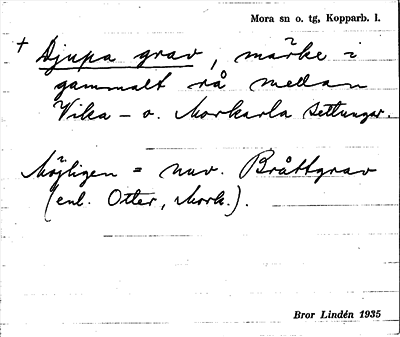 Mora sn o. tg, Kopparb. l.
+ Djupa grav, märke i
gammalt rå mellan
Vika - o. Morkarla settungar.
Möjligen = nuv. Bråttgrav
(enl. Otter, Mork.).
Bror Lindén 1935